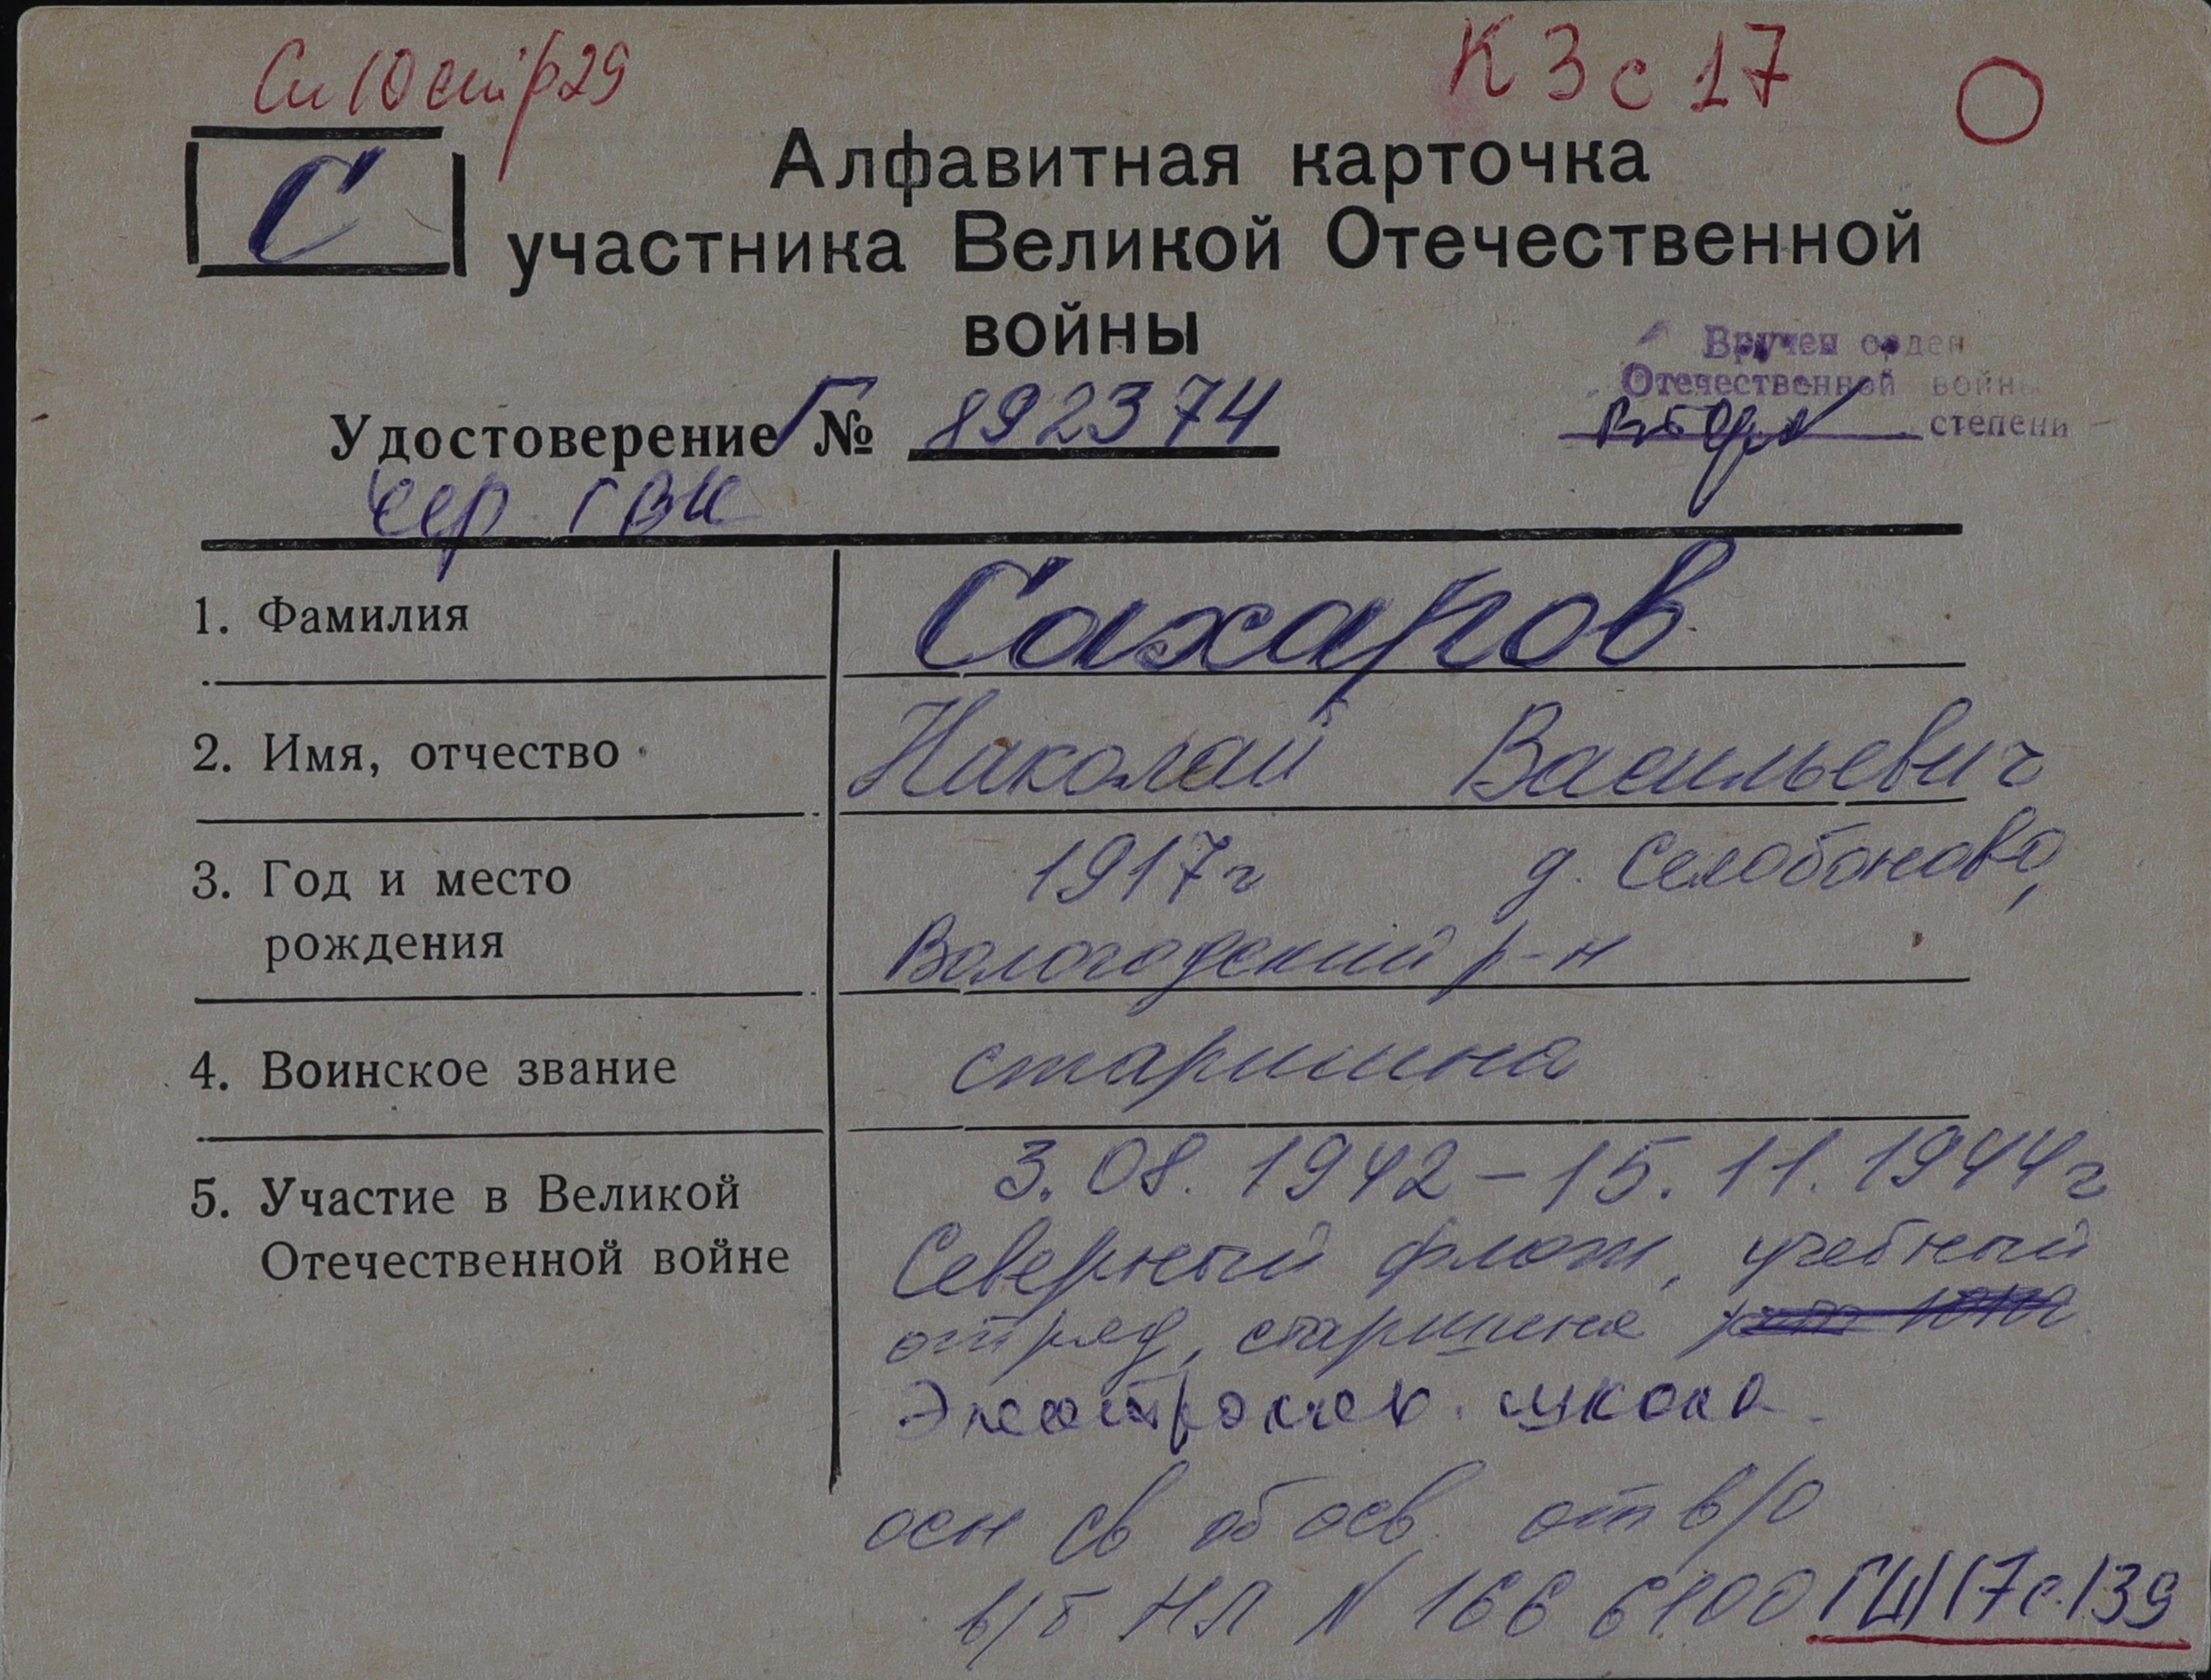 Сп 10 стр 29
К 3 с 17
С
Алфавитная карточка
участника Великой Отечественной
войны
Вручен орден
Отечественной войны
степени
Удостоверение Г № 892374
сер. ГВК
1. Фамилия
Сахаров
2. Имя, отчество
Николай Васильевич
3. Год и место
рождения
1917г д. Селобоново,
Вологодский р-н
4. Воинское звание
старшина
5. Участие в Великой
Отечественной войне
3.08.1942-15.11.1944г
Северный флот, учебный
отряд, старшина
школа
осн св об осв от в/о
в/б НЛ N 166 6100 ГШ/17с.139